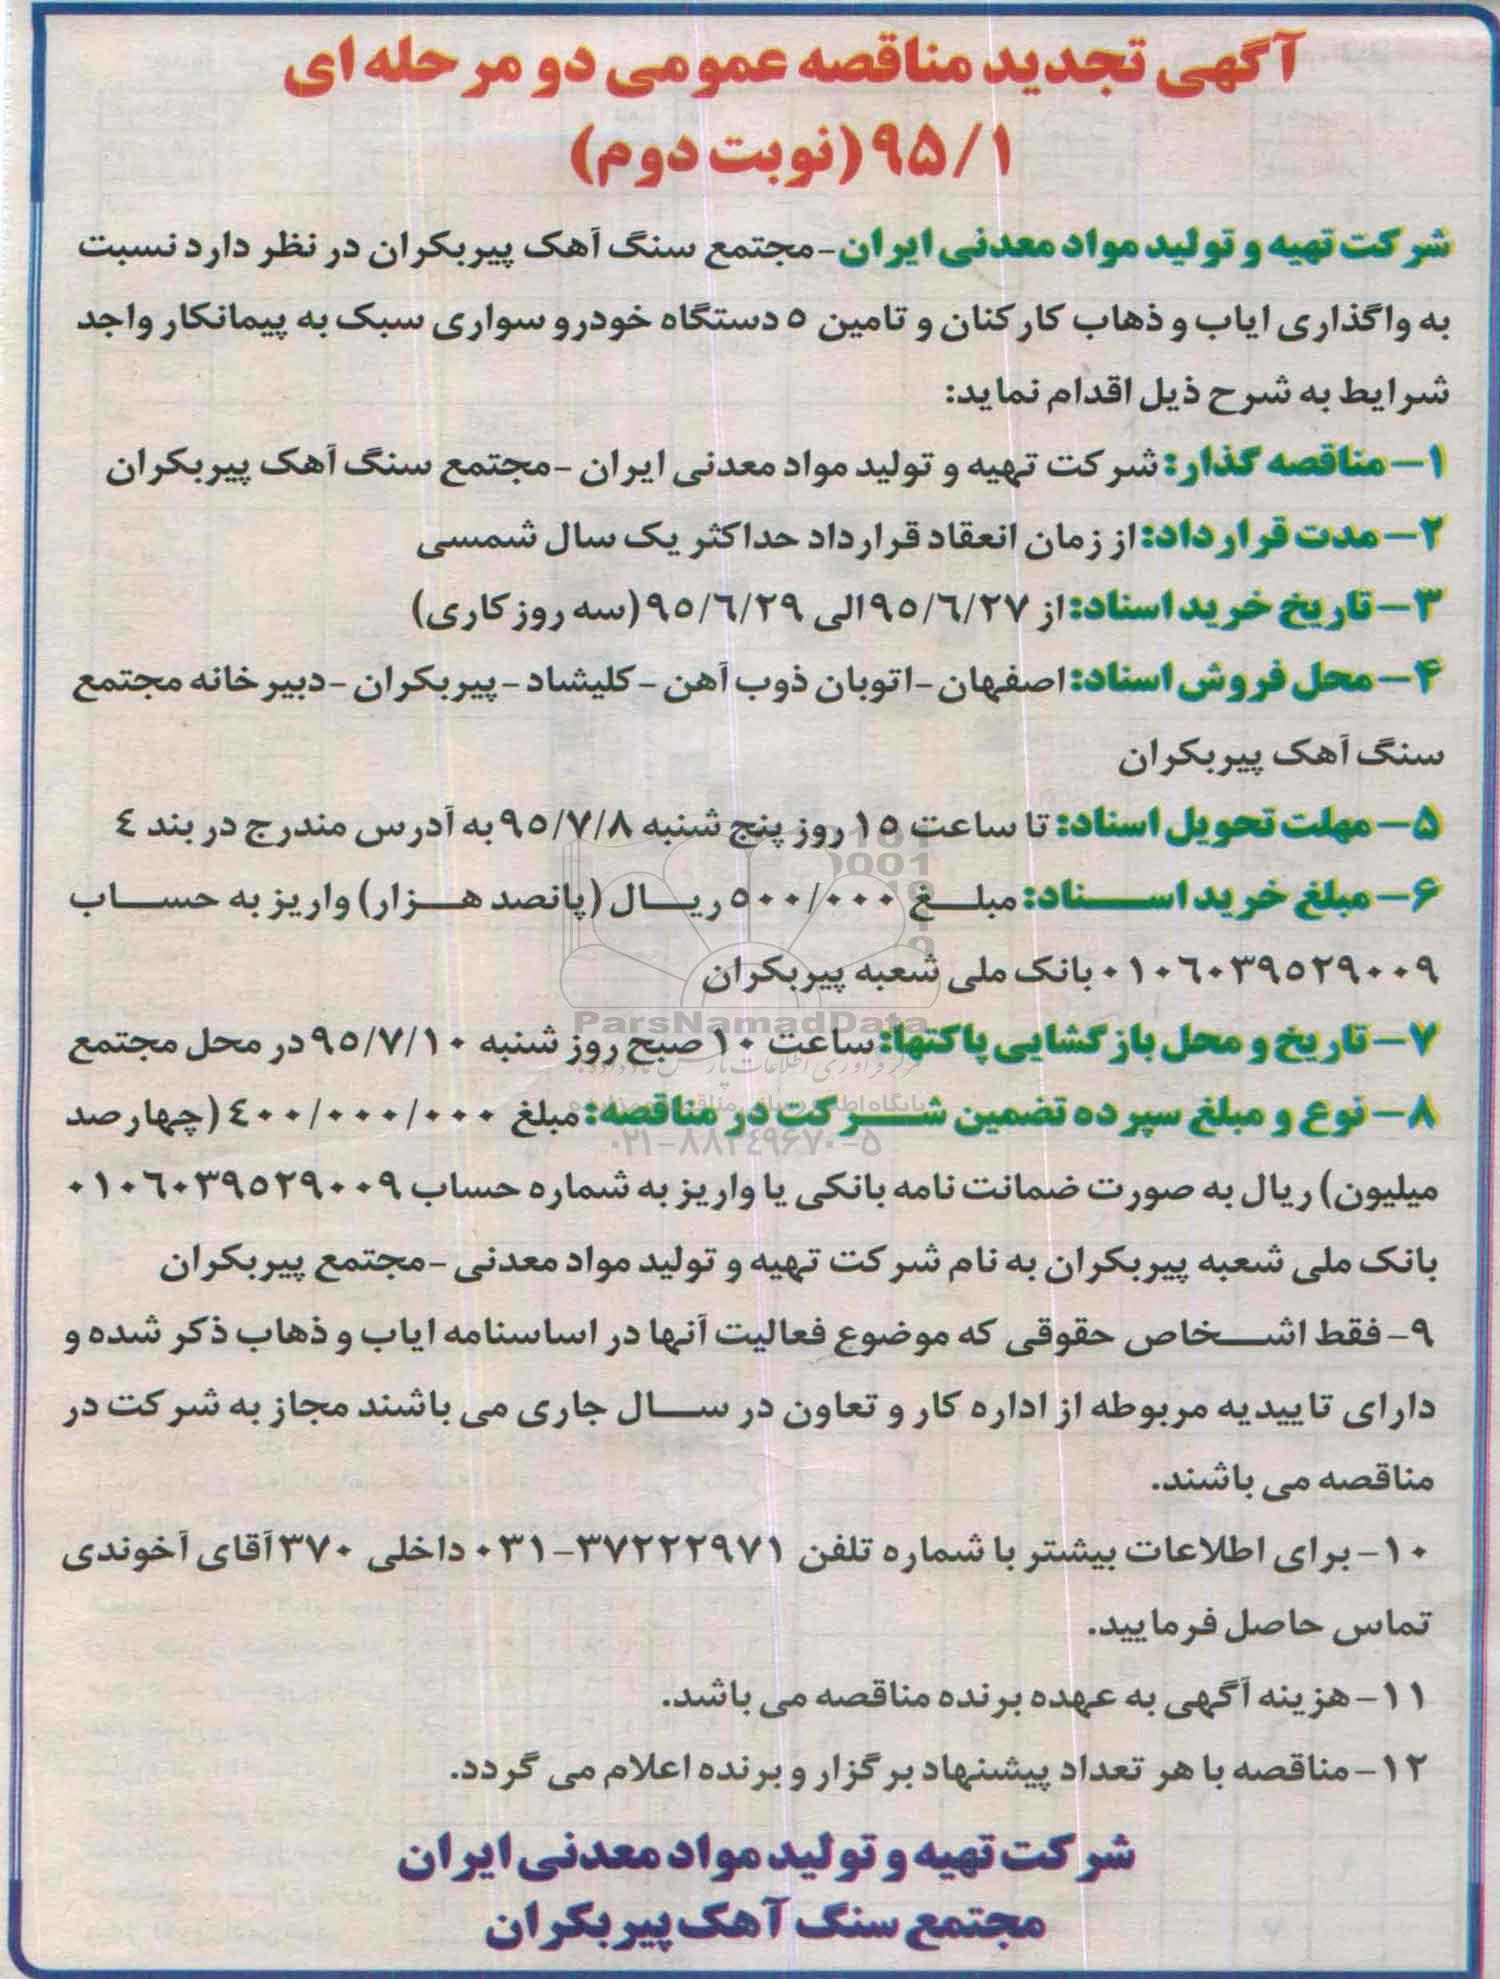 آگهی تجدید مناقصه عمومی دو مرحله ای
۹۵/۱ (نوبت دوم)
شرکت تهیه و تولید مواد معدنی ایران-مجتمع سنگ آهک پیربکران در نظر دارد نسبت
به واگذاری ایاب و ذهاب کارکنان و تامین ۵ دستگاه خودرو سواری سبک به پیمانکار واجد
شرایط به شرح ذیل اقدام نماید:
۱- مناقصه گذار: شرکت تهیه و تولید مواد معدنی ایران -مجتمع سنگ آهک پیربکران
۲- مدت قرارداد: از زمان انعقاد قرارداد حداکثر یک سال شمسی
۳- تاریخ خرید اسناد: از ۹۵/۶/۲۷ الی ۹۵/۶/۲۹ (سه روز کاری)
۴- محل فروش اسناد: اصفهان-اتوبان ذوب آهن -کلیشاد-پیربکران -دبیرخانه مجتمع
سنگ آهک پیربکران
۵- مهلت تحویل اسناد: تا ساعت ۱۵ روز پنج شنبه ۹۵/۷/۸ به آدرس مندرج در بند ۴
۶- مبلغ خرید اسناد: مبلغ ۵۰۰/۰۰۰ ریال (پانصد هزار) واریز به حساب
۰۱۰۶۰۳۹۵۲۹۰۰۹ بانک ملی شعبه پیربکران
۷- تاریخ و محل بازگشایی پاکتها: ساعت ۱۰ صبح روز شنبه ۹۵/۷/۱۰ در محل مجتمع
۸- نوع و مبلغ سپرده تضمین شرکت در مناقصه: مبلغ ۴۰۰/۰۰۰/۰۰۰ (چهارصد
میلیون) ریال به صورت ضمانت نامه بانکی یا واریز به شماره حساب ۰۱۰۶۰۳۹۵۲۹۰۰۹
بانک ملی شعبه پیربکران به نام شرکت تهیه و تولید مواد معدنی -مجتمع پیربکران
۹- فقط اشخاص حقوقی که موضوع فعالیت آنها در اساسنامه ایاب و ذهاب ذکر شده و
دارای تاییدیه مربوطه از اداره کار و تعاون در سال جاری می باشند مجاز به شرکت در
مناقصه می باشند.
۱۰- برای اطلاعات بیشتر با شماره تلفن ۳۷۲۲۲۹۷۱-۰۳۱ داخلی ۳۷۰ آقای آخوندی
تماس حاصل فرمایید.
۱۱- هزینه آگهی به عهده برنده مناقصه می باشد.
۱۲- مناقصه با هر تعداد پیشنهاد برگزار و برنده اعلام می گردد.
شرکت تهیه و تولید مواد معدنی ایران
مجتمع سنگ آهک پیربکران
ParsNamadData
۰۲۱-۸۸۳۴۹۶۷۰-۵